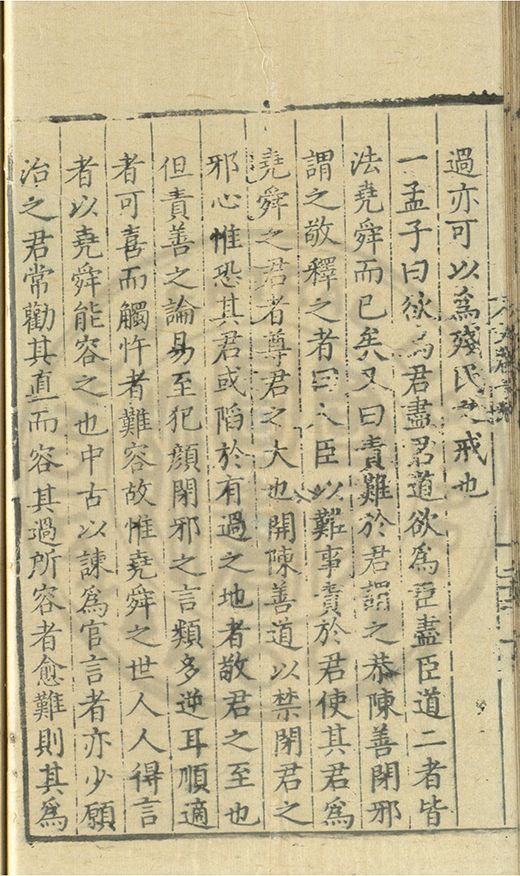 過亦可以爲殘民之戒也
一孟子曰欲爲君盡君道欲爲臣盡臣道二者皆
法堯舜而已矣又曰責難於君謂之恭陳善閉邪
謂之敬釋之者曰人臣以難事責於君使其君爲
堯舜之君者尊君之大也開陳善道以禁閉君之
邪心惟恐其君或陷於有過之地者敬君之至也
但責善之論易至犯顏閉邪之言類多逆耳順適
者可喜而觸忤者難容故惟堯舜之世人人得言
者以堯舜能容之也中古以諫爲官言者亦少願
治之君常勸其直而容其過所容者愈難則其爲